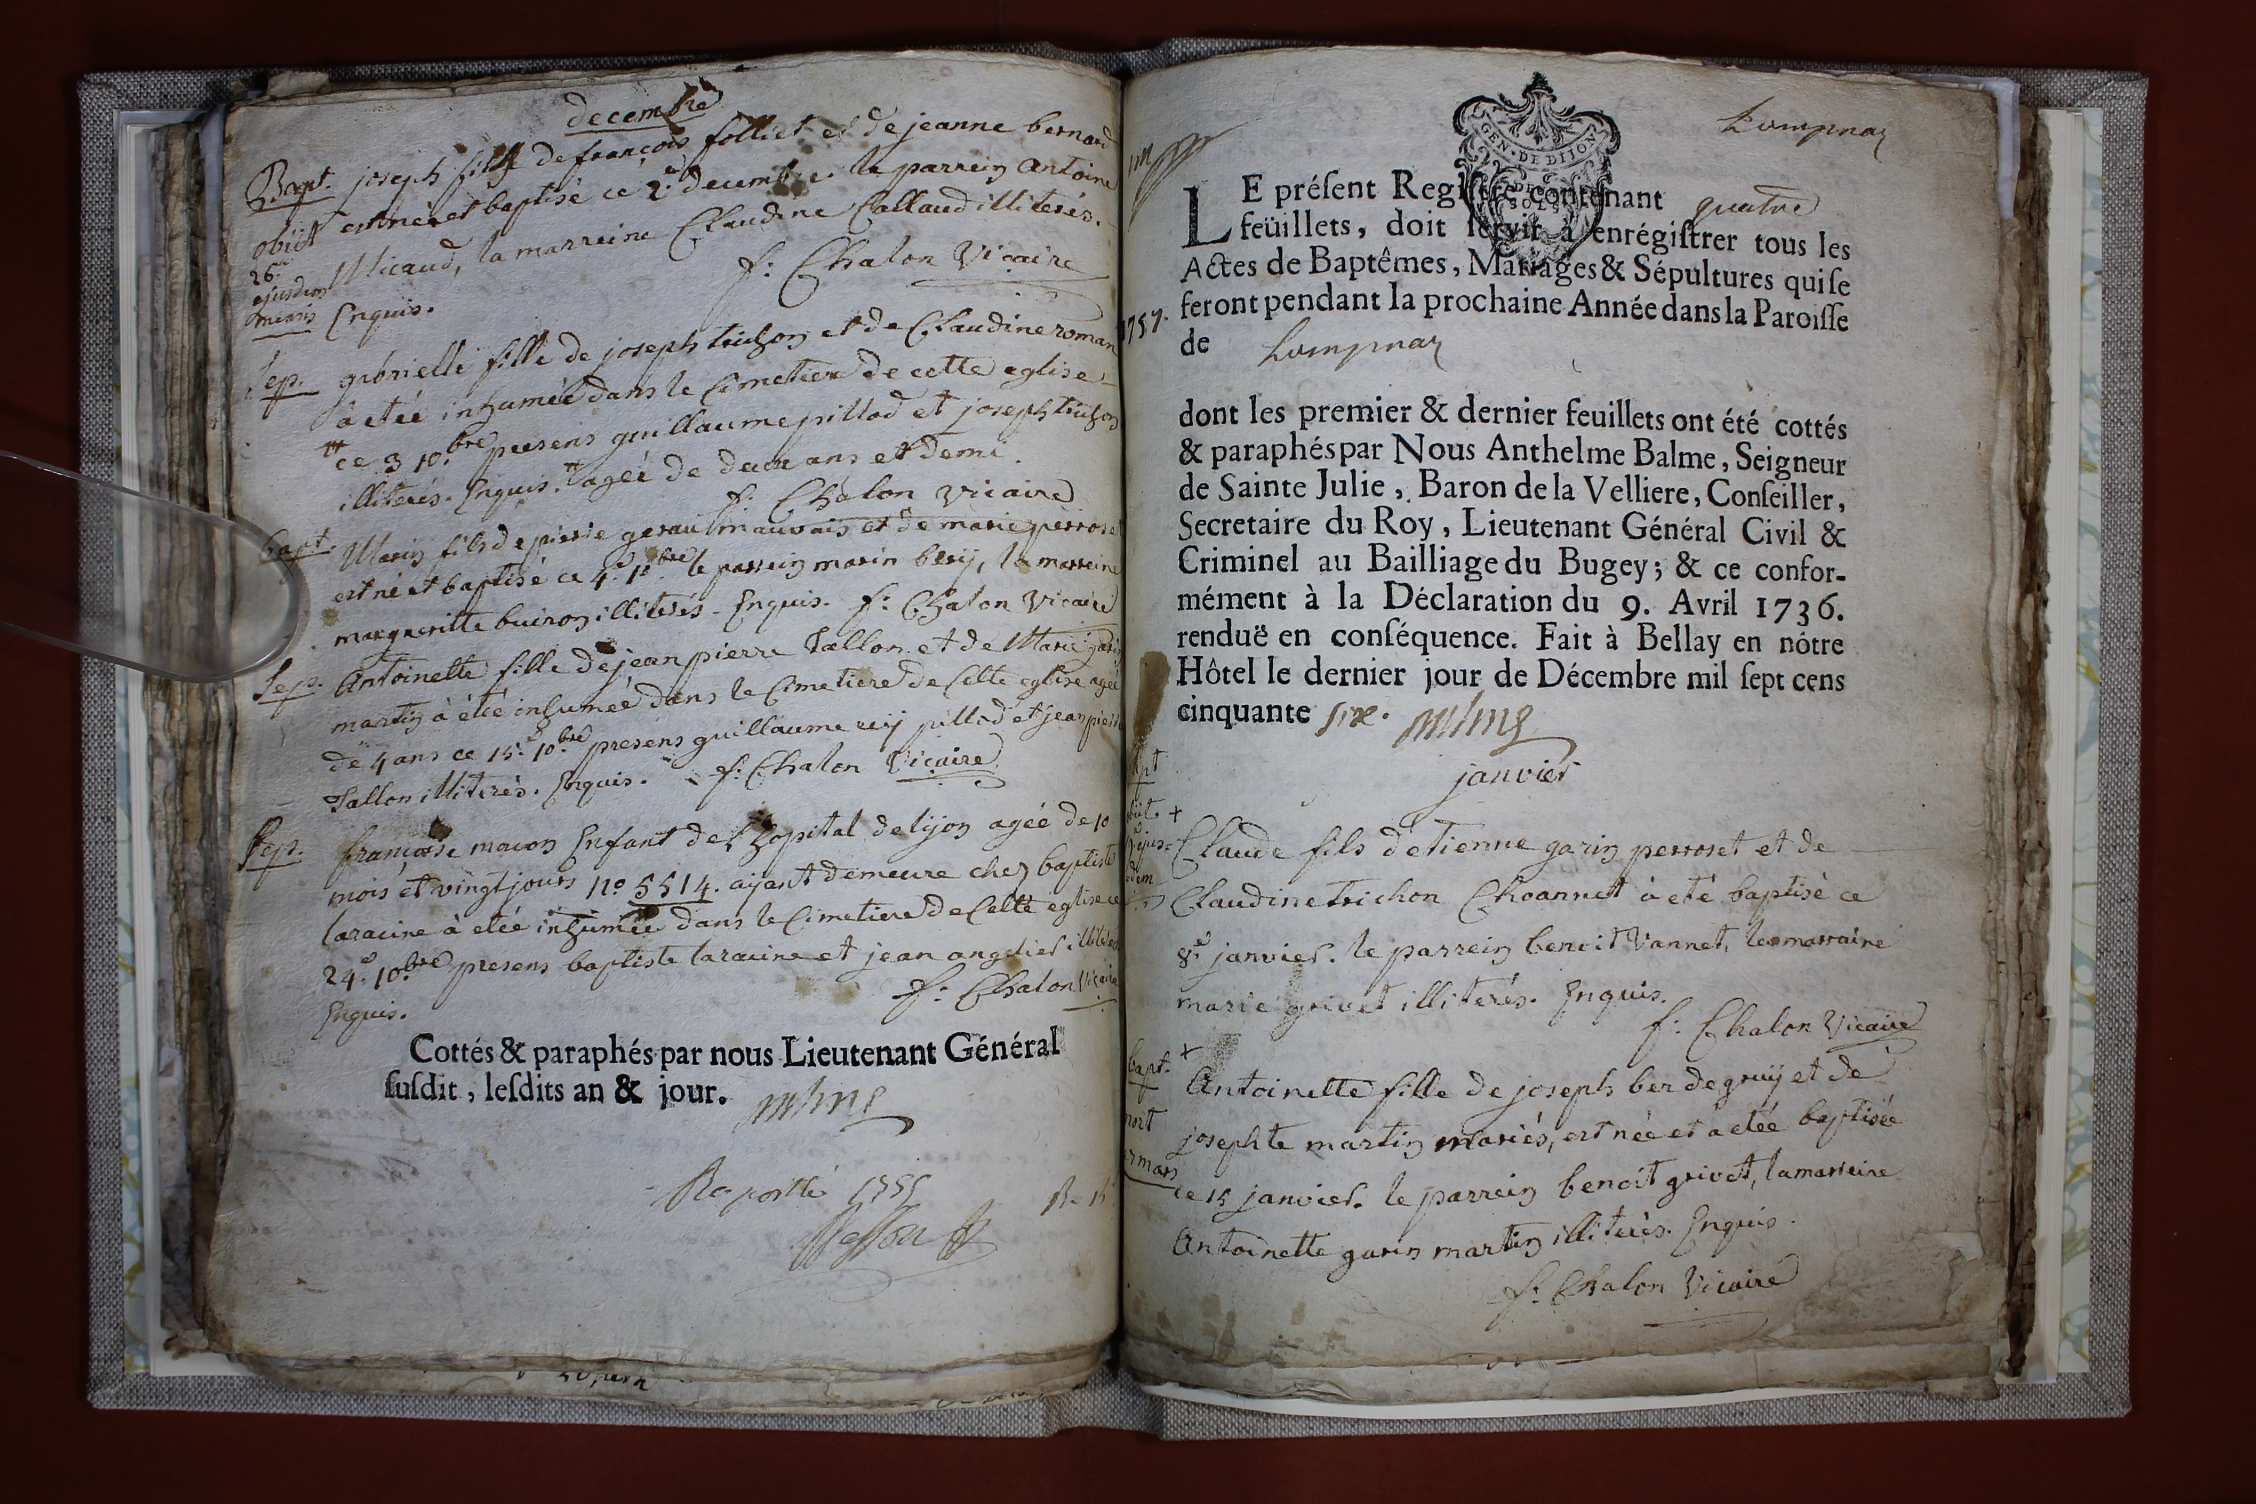 decembre
Bapt. joseph fils de francois folliet et de jeanne bernard
obiit est né et baptisé ce 2.e decembre. le parrein Antoine
26.a Micaud, la marreine Claudine Callaud illiterés.
ejusdem
mensis Enquis. f: Chalon Vicaire
Sep. gabrielle fille de joseph trichon et de Claudine roman
à etéé inhumée dans le Cimetiere de cette eglise
ce 3 10.bre presens guillaume pillod et joseph trichon
illiterés. Enquis. agéé de deux ans et demi.
f: Chalon Vicaire
bapt. Marin fils de pierre gerau mauvais et de marie perroset
est né et baptisé ce 4.e 10.bre le parrein marin bery, la marreine
margueritte buiron illiterés - Enquis. f: Chalon Vicaire
Sep. Antoinette fille de jean pierre Tallon et de Marie garin
martin à étéé inhumée dans le Cimetiere de Cette eglise agéé
de 4 ans ce 15.e 10.bre presens guillaume rey pillod et jean pierre
Tallon illiterés. Enquis. f: Chalon Vicaire
Sep. francoise macon Enfant de l'hopital de lyon agéé de 10
mois et vingt jours no 5514. ayant demeure chez baptiste
laracine à etéé inhumée dans le Cimetiere de Cette eglise ce
24.e 10.bre presens baptiste laracine et jean angelier illiterés
Enquis. f: Chalon Vicaire
Cottés & paraphés par nous Lieutenant Général
susdit, lesdits an & jour.
Raportté 1755
GEN · DE DIJON
Lompnaz
LE présent Registre contenant quatre
feüillets, doit servir à enrégistrer tous les
Actes de Baptêmes, Mariages & Sépultures qui se
feront pendant la prochaine Année dans la Paroisse
1757.
de Lompnaz
dont les premier & dernier feuillets ont été cottés
& paraphés par Nous Anthelme Balme, Seigneur
de Sainte Julie, Baron de la Velliere, Conseiller,
Secretaire du Roy, Lieutenant Général Civil &
Criminel au Bailliage du Bugey; & ce confor-
mément à la Déclaration du 9. Avril 1736.
renduë en conséquence. Fait à Bellay en nôtre
Hôtel le dernier jour de Décembre mil sept cens
cinquante six.
janvier
Claude fils d'etienne garin perroset et de
Claudine trichon Choannet à eté baptisè ce
8.e janvier. le parrein benoit Vannet, la marraine
marie grivet illiterés. Enquis.
f: Chalon Vicaire
bapt. Antoinette fille de joseph ber degruy et de
josephte martin mariés, est née et a etéé baptisée
ce 15 janvier. le parrein benoit grivet, la marreine
Antoinette garin martin illiterés. Enquis.
f: Chalon Vicaire